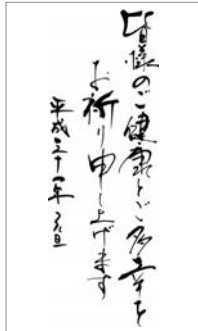 皆様のご健康とご多幸を
お祈り申し上げます
平成三十一年 元旦